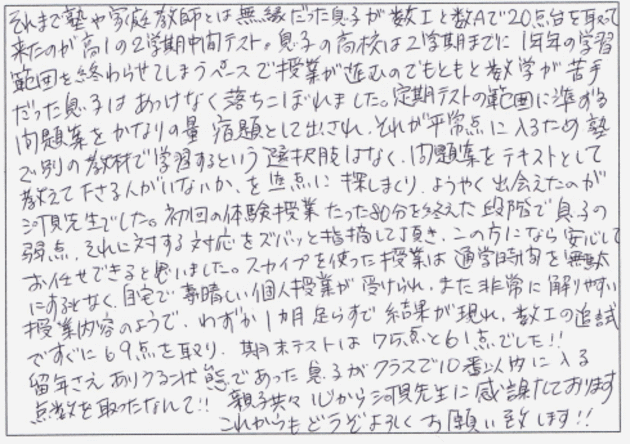 それまで塾や家庭教師とは無縁だった息子が数Iと数Aで20点台を取って
来たのが高1の2学期中間テスト。息子の高校は2学期までに1年年の学習
範囲を終わらせてしまうペースで授業が進むのでもともと数学が苦手
だった息子はあっけなく落ちこぼれました。定期テストの範囲に準ずる
問題集をかなりの量 宿題として出され、それが平常点に入るため塾
で別の教材で学習するという選択肢はなく、問題集をテキストとして
教えて下さる人がいないか、を 焦点に 探しまくり、ようやく出会えたのが
河須先生でした。初回の体験授業 たった80分を終えた段階で息子の
弱点、それに対する対応をズバッと指摘して頂き、この方になら安心して
お任せできると思いました。スカイプを使った授業は 通学時間を無駄
にすることなく、自宅で素晴しい個人授業が受けられ、また非常に解りやすい
授業内容のようで、わずか1カ月足らずで結果が現れ、数Iの追試
ですぐに69点を取り、期末テストは75点と61点でした!!
留年さえありうる状態であった息子がクラスで10番以内に入る
点数を取ったなんて!! 親子共々 心から河須先生に感謝しております
これからもどうぞよろしくお願い致します!!